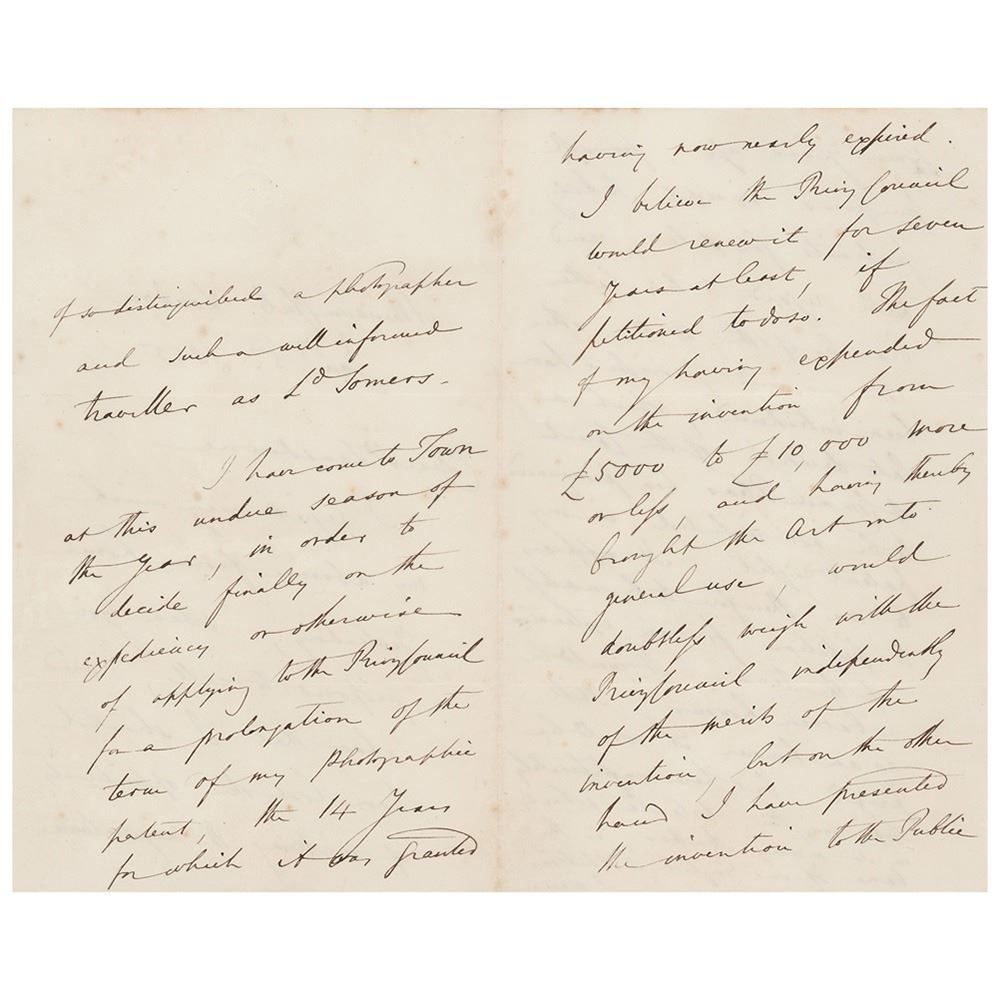 of so distinguished a photographer
and such a well informed
traveller as Ld Somers.
I have come to Town
at this undue season of
the Year, in order to
decide finally on the
expediency or otherwise
of applying to the Privy Council
for a prolongation of the
term of my photographic
patent, the 14 Years
for which it was granted
having now nearly expired.
I believe the Privy Council
would renew it for seven
Years at least, if
petitioned to do so. The fact
of my having expended
on the invention from
£5000 to £10,000 more
or less, and having thereby
brought the Art into
general use, would
doubtless weigh with the
Privy Council independently
of the merits of the
invention, but on the other
hand I have presented
the invention to the Public